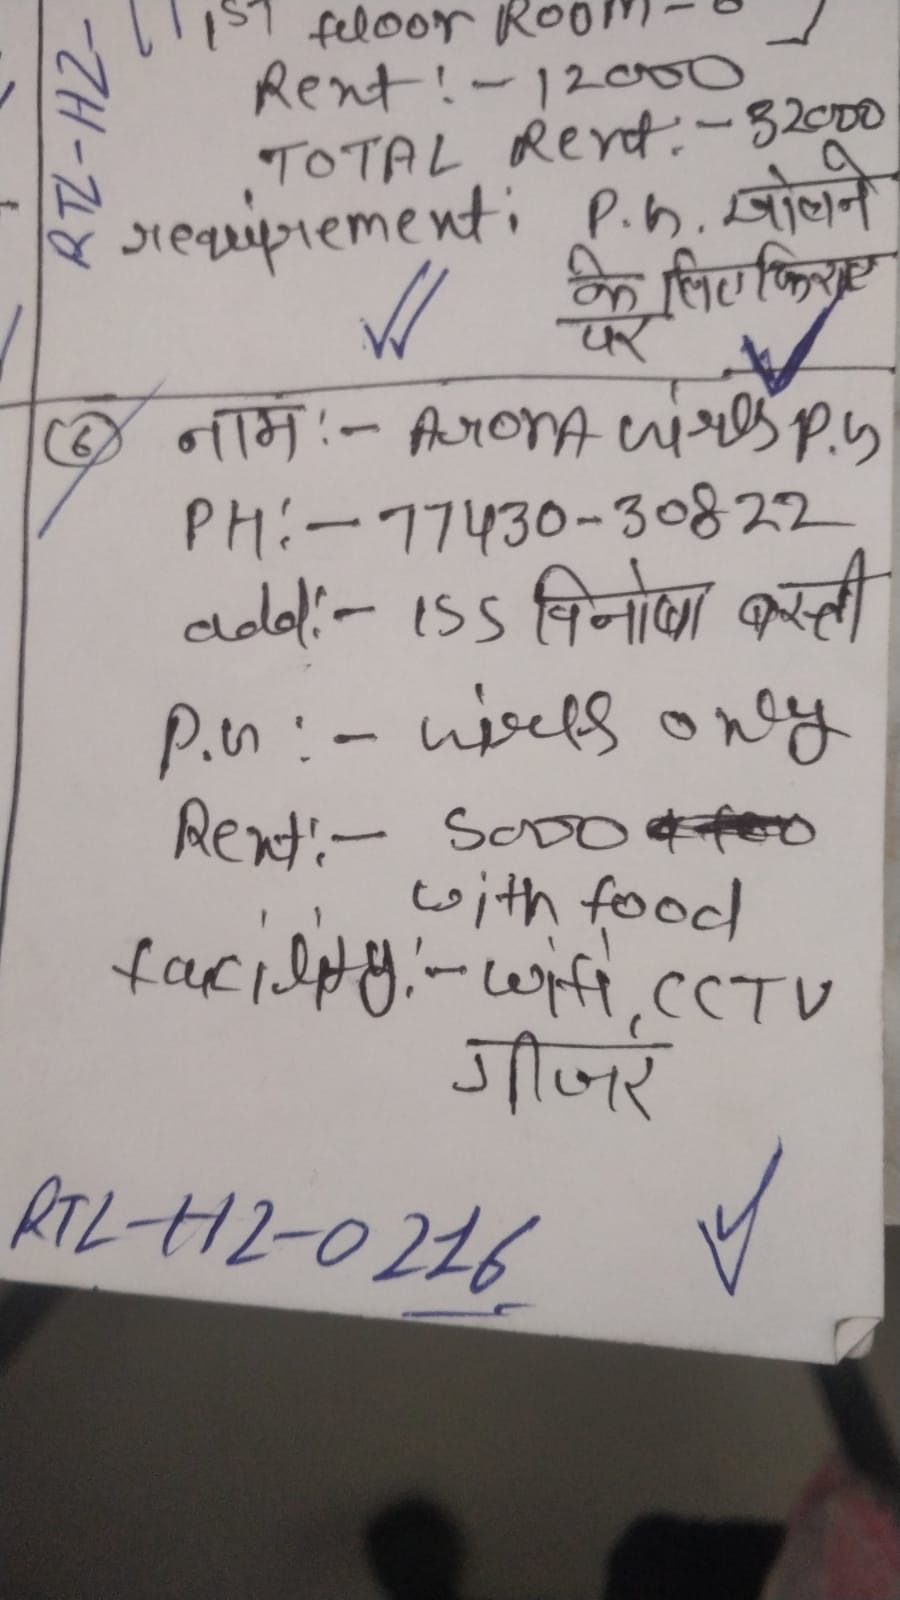 1ST feloor Room - 6
Rent :- 12000
TOTAL Rent :- 32000
requirement : P.G. खोलने
के लिए किराए
पर
RTL-HZ-
6 नाम :- ArorA Girls P.G
PH :- 77430-30822
add :- 155 विनोबा बस्ती
P.G :- Girls only
Rent :- 5000
with food
facility :- wifi, CCTV
गीजर
RTL-HZ-0216